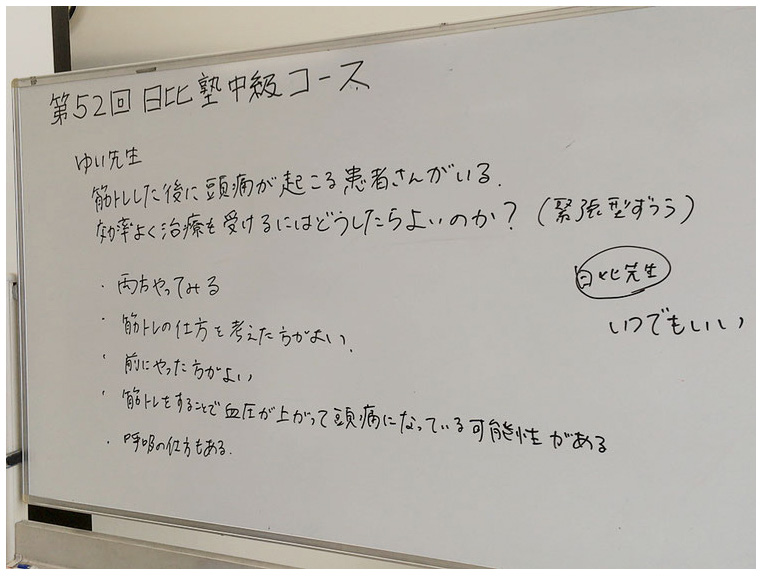 第52回 日比塾中級コース
ゆい先生
筋トレした後に頭痛が起こる患者さんがいる.
効率よく治療を受けるにはどうしたらよいのか? (緊張型ずつう)
日比先生
いつでもいい
・両方やってみる
・筋トレの仕方を考えた方がよい.
・前にやった方がよい
・筋トレをすることで血圧が上がって頭痛になっている可能性がある
・呼吸の仕方もある.